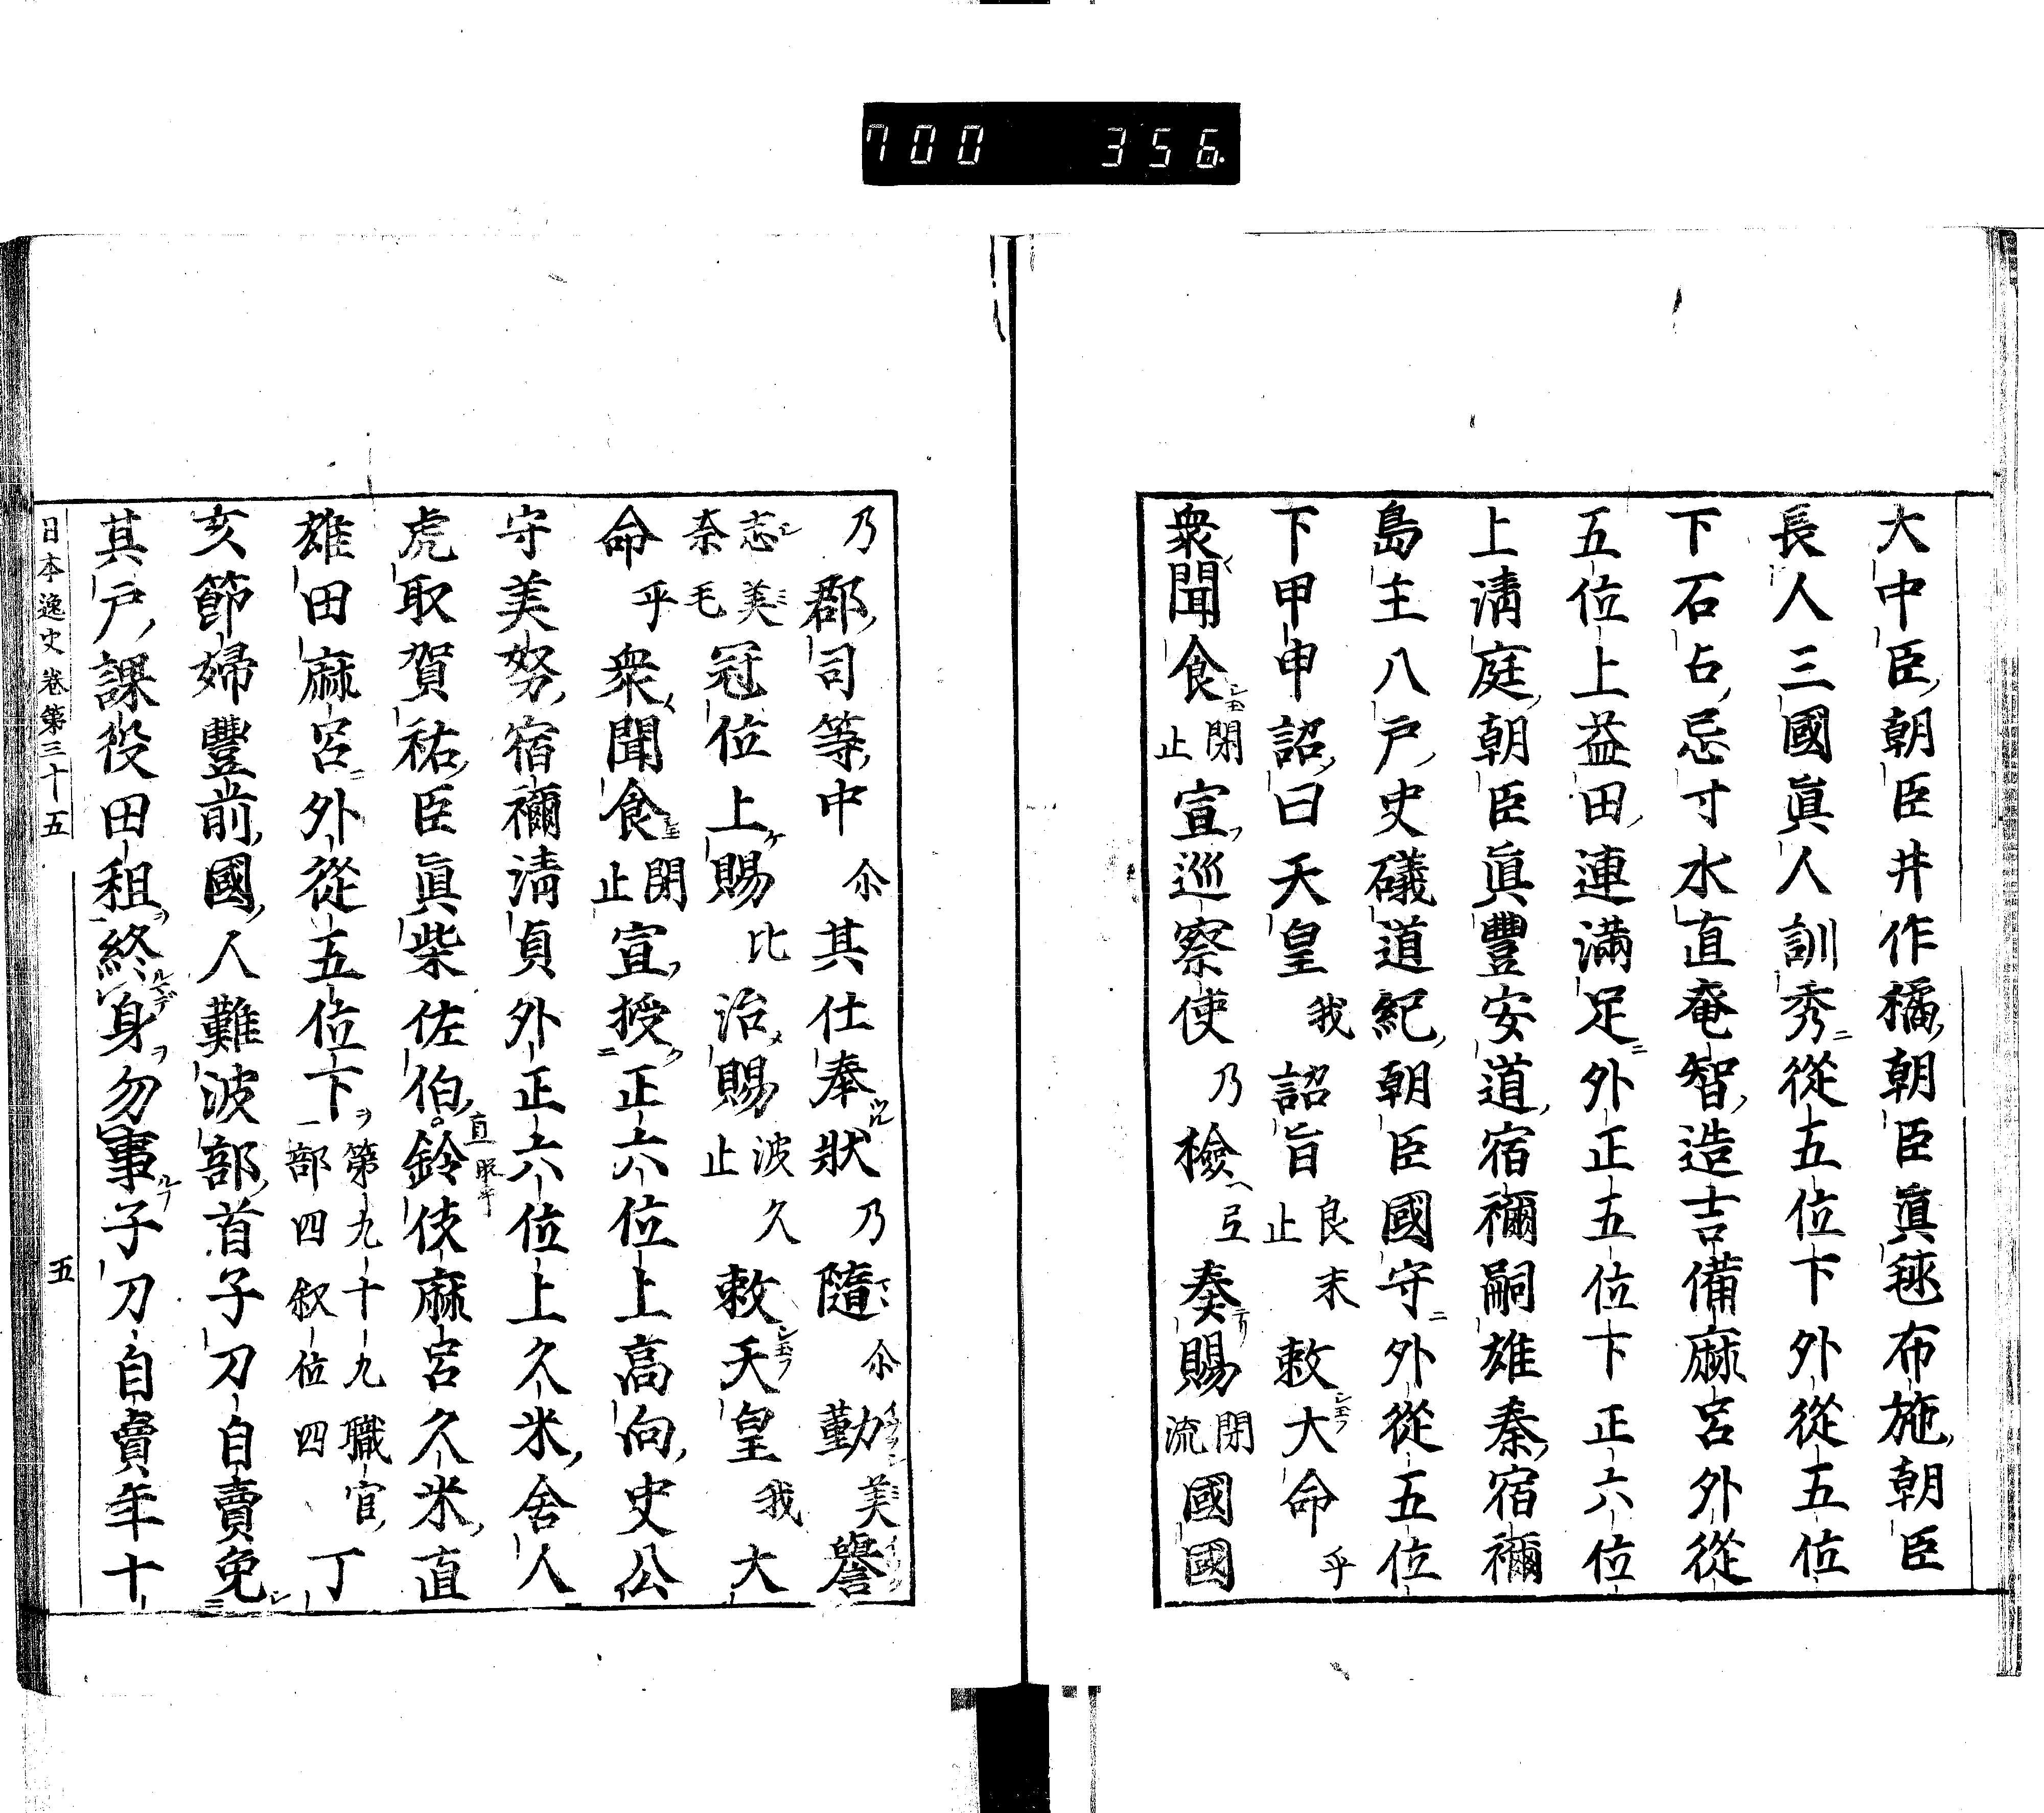 700 356
大中臣朝臣井作橘朝臣眞毬布施朝臣
長人三國眞人訓秀從五位下外從五位
下石占忌寸水直奄智造吉備麻呂外從
五位上益田連滿足外正五位下正六位
上清庭朝臣眞豐安道宿禰嗣雄秦宿禰
島主八戸史礒道紀朝臣國守外從五位
下甲申詔曰天皇我詔旨良末止敕大命乎
衆聞食閇止宣巡察使乃檢弖奏賜閇流國國
乃郡司等中尒其仕奉狀乃隨尒勤美譽
志美奈毛冠位上賜比治賜波久止敕天皇我大
命乎衆聞食閇止宣授正六位上高向史公
守美努宿禰清貞外正六位上久米舍人
虎取賀祐臣眞柴佐伯直鈴伎麻呂久米直
雄田麻呂外從五位下第九十九職官部四叙位四丁
亥節婦豐前國人難波部首子刀自賣免
其戸課役田租終身勿事子刀自賣年十
日本逸史卷第三十五 五